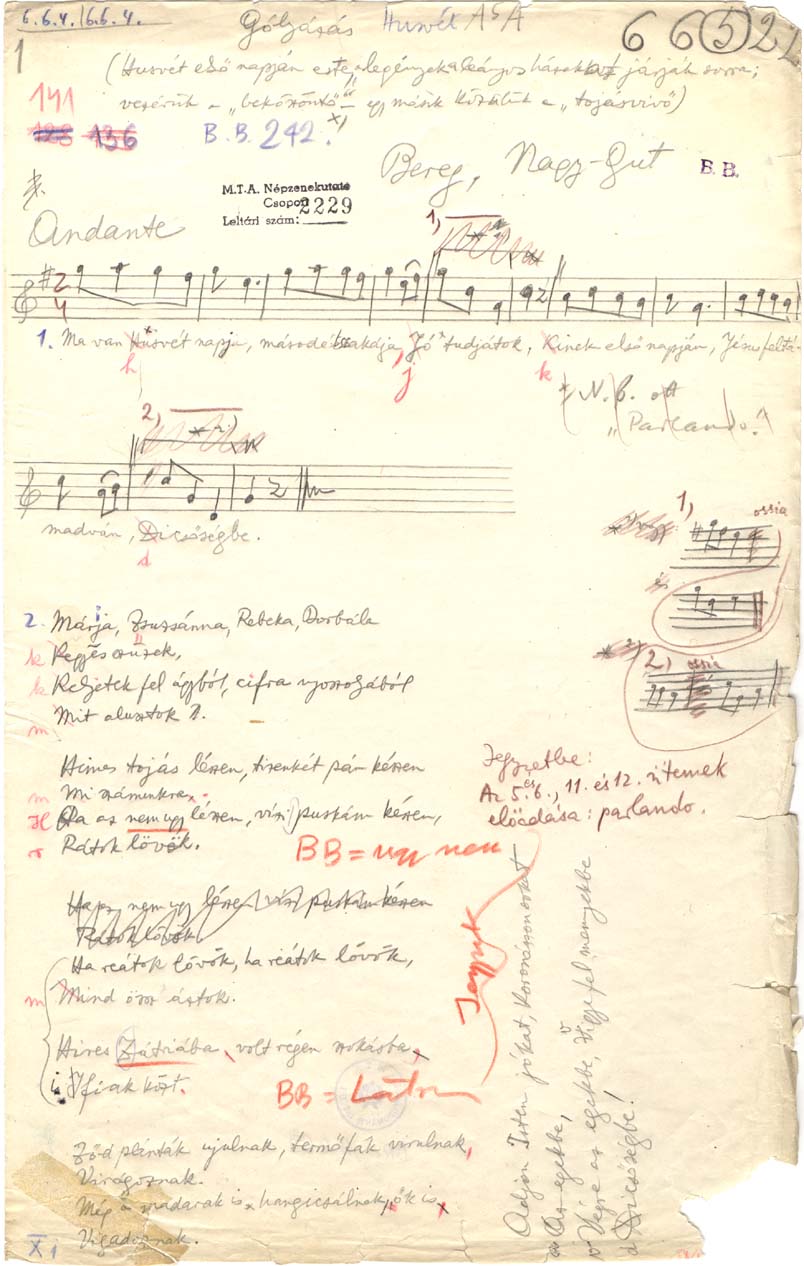 6.6.4. /6.6.4.
Gólyázás Husvét ASA
6 6 5 2
1
(Husvét első napján este a legények a leányos házakat járják sorra;
vezérük a "beköszöntő" egy másik közülük a "tojásvivő")
141
136
B.B. 242.
Bereg, Nagy-Gut
B. B.
M.T.A. Népzenekutató
Csoport
Leltári szám: 2229
Andante
1,
2
4
1. Ma van Husvét napja, másod éjtszakája, Jó tudjátok, Kinek első napján, Jézus feltá-
h
j
k
* N.B. ott
"Parlando."
2,
madván, Dicsőségbe.
d
1,
ossia
és
2, ossia
2. Márja, Zsuzsánna, Rebeka, Borbála
k Kegyes szüzek,
k Keljetek fel ágyból, cifra nyoszolyából
Mit alusztok?
m
Himes tojás lészen, tizenkét pár készen
m Mi számunkra.
H Ha az nem ugy lészen, vizi puskám készen,
r Rátok lövök.
BB = ugy nem
Jegyzetbe:
Az 5. és 6., 11. és 12. ütemek
előadása: parlando.
Ha az nem ugy lészen vizi puskám készen
Rátok lövök.
Ha reátok lövök, ha reátok lövök,
m Mind össz áztok.
Hires Zátriába, volt régen szokásba
i Ifiak közt.
BB = Látri
Jegyzet
Zöld plánták ujulnak, termőfák virulnak,
Virágoznak.
Még a madarak is hangicsálnak, ők is
Vigadoznak.
X 1
Adjon Isten jókat, koronásson sokat
a Az egekbe,
v Végre az egekbe, Vigye fel menyekbe
d Dicsőségbe!